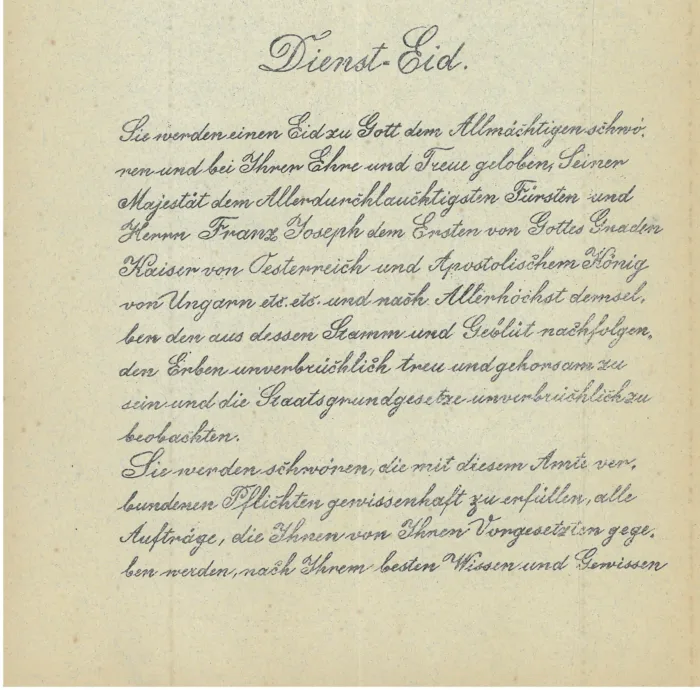 Dienst-Eid.
Sie werden einen Eid zu Gott dem Allmächtigen schwö-
ren und bei Ihrer Ehre und Treue geloben, Seiner
Majestät dem Allerdurchlauchtigsten Fürsten und
Herrn Franz Joseph dem Ersten von Gottes Gnaden
Kaiser von Oesterreich und Apostolischem König
von Ungarn etc. etc. und nach Allerhöchst demsel-
ben den aus dessen Stamm und Geblüt nachfolgen-
den Erben unverbrüchlich treu und gehorsam zu
sein und die Staatsgrundgesetze unverbrüchlich zu
beobachten.
Sie werden schwören, die mit diesem Amte ver-
bundenen Pflichten gewissenhaft zu erfüllen, alle
Aufträge, die Ihnen von Ihren Vorgesetzten gege-
ben werden, nach Ihrem besten Wissen und Gewissen